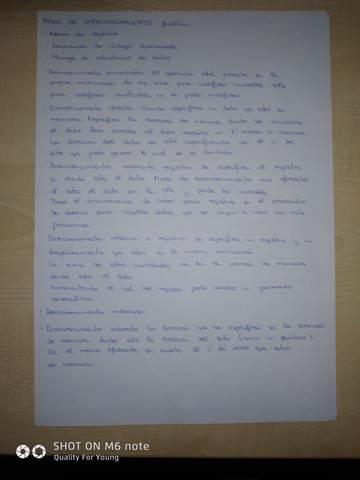 MODOS DE DIRECCIONAMIENTO facilitan
- Ahorro de espacio
- Construcción de código reubicable
- Manejo de estructuras de datos
- Direccionamiento inmediato: El operando está presente en la
propia instrucción. No nos sirve para codificar variables, sólo
para codificar constantes, no se puede modificar
- Direccionamiento directo: Cuando especifico un dato que está en
memoria. Especifico la dirección de memoria donde se encuentra
el dato. Para acceder al dato necesito un 1 acceso a memoria.
La dirección del dato se está especificando con el nº de
bits que puedo generar, el cual es
- Direccionamiento mediante registro: Se especifica el registro
en donde está el dato. Modo de direccionamiento más eficiente
el dato está en la CPU y puede ser variable
Tiene el inconveniente de haber pocos registros en el procesador
Se deberá poner aquellos datos que se vayan a usar con más
frecuencia.
- Direccionamiento relativo a registro: Se especifica un registro y un
desplazamiento que está en la misma instrucción.
La suma de estas cantidades me da la posición de memoria
donde está el dato.
Incrementando el del registro puedo acceder a posiciones
consecutivas.
- Direccionamiento indexado
- Direccionamiento indirecto: La dirección que se especifica es la dirección
de memoria donde está la dirección del dato (como un puntero)
Es el menos eficiente en cuanto al nº de veces que entro
en memoria
SHOT ON M6 note
Quality For Young